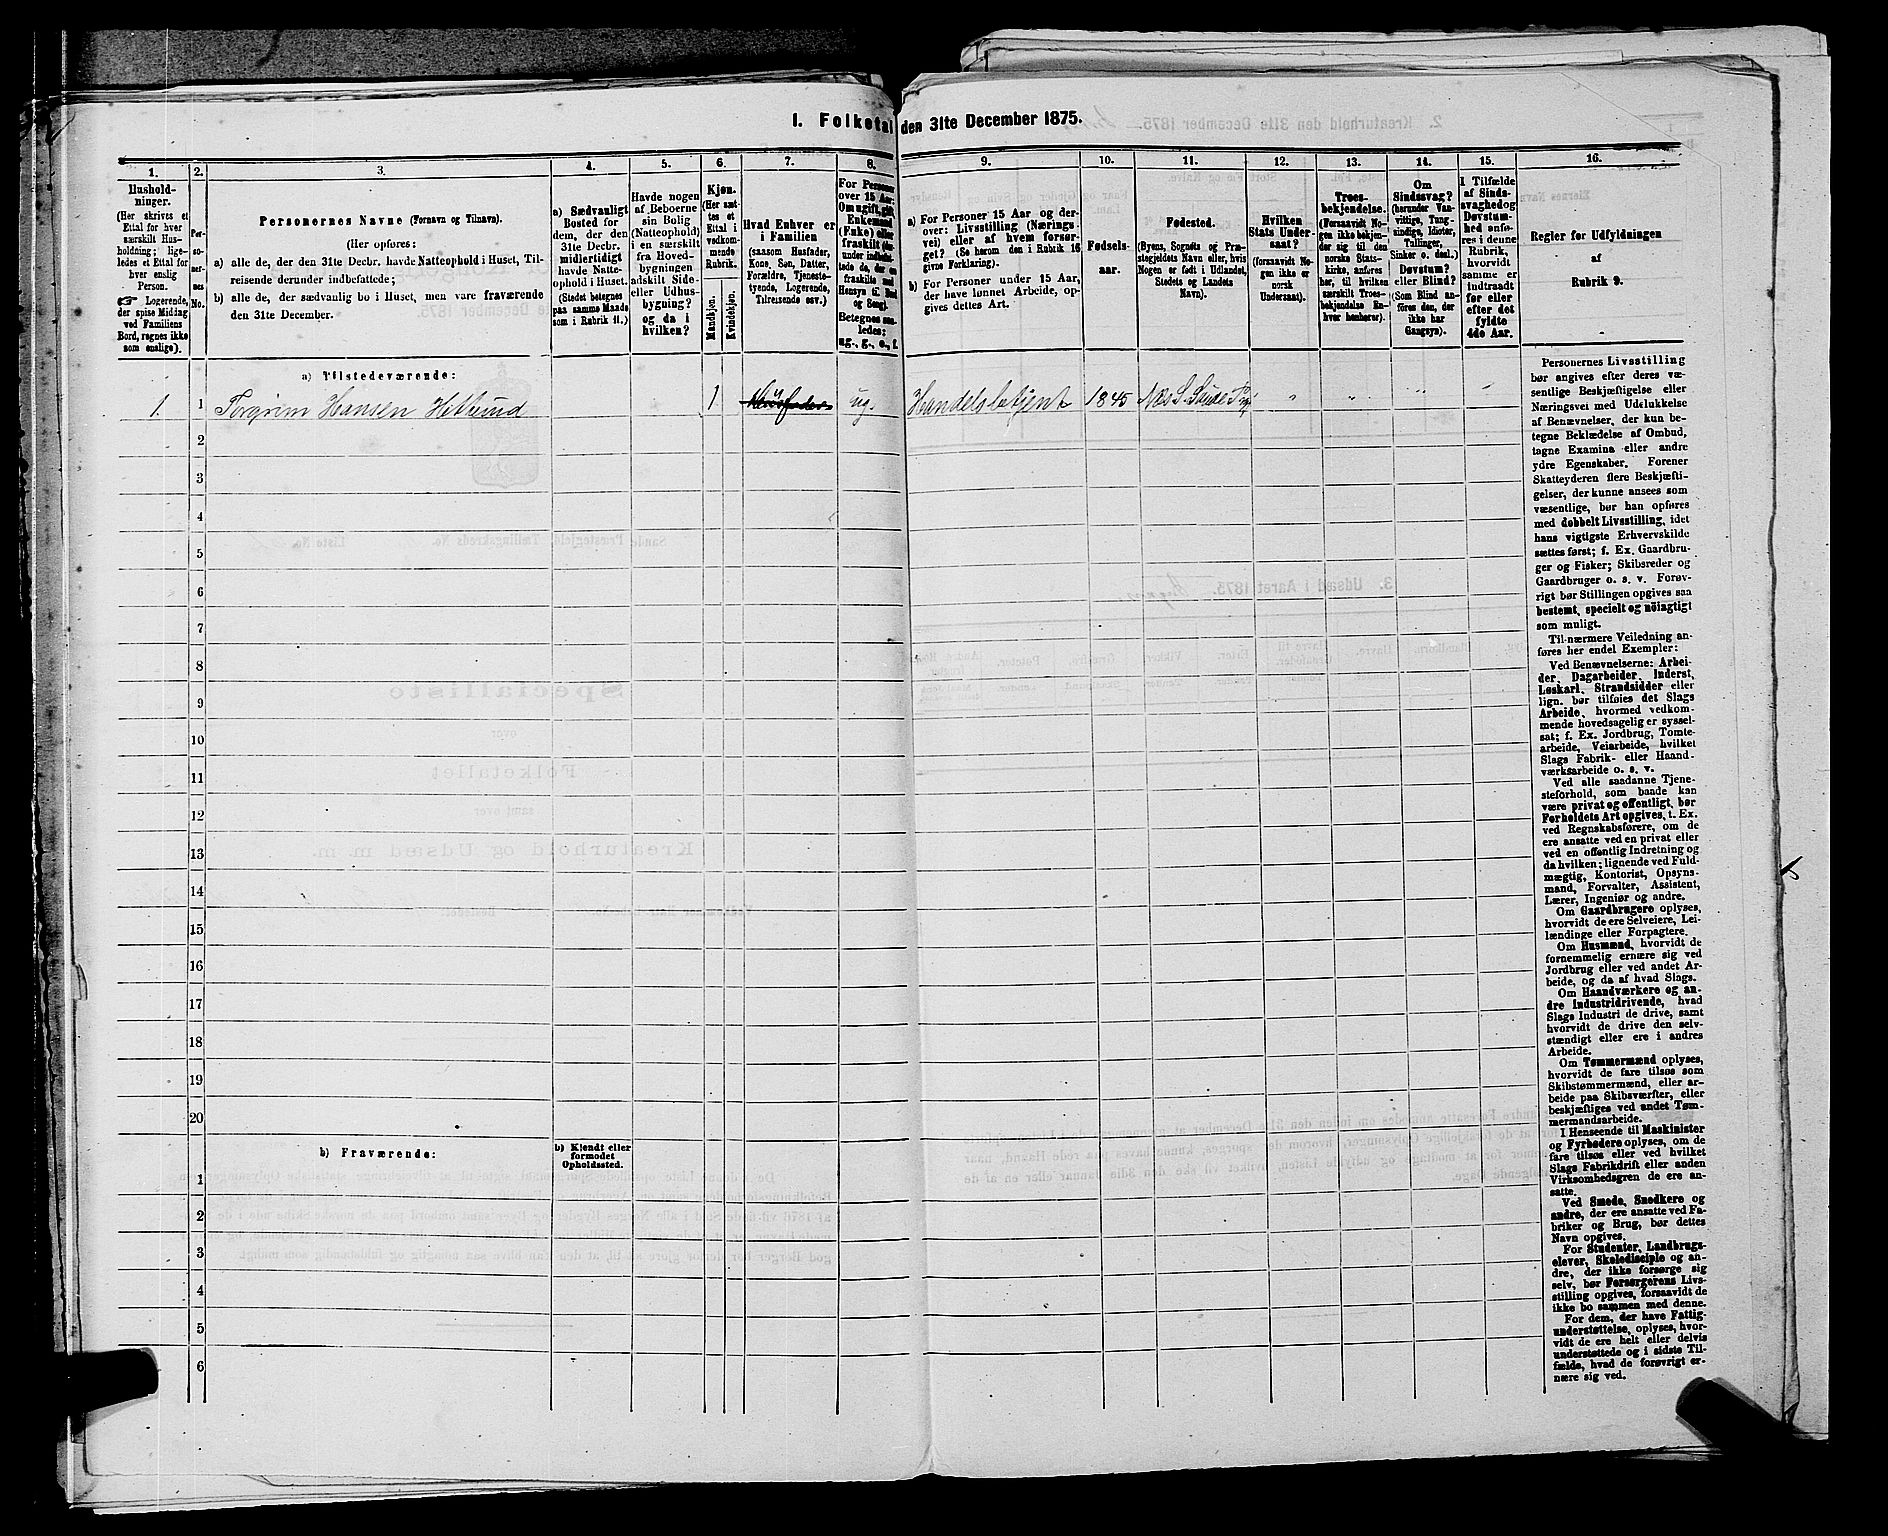 1. Folketal den 31te December 1875.
1.
Hushold-
ninger.
(Her skrives et
Ettal for hver
særskilt Hus-
holdning; lige-
ledes et Ettal for
hver enslig
Person.
☞ Logerende,
der spise Middag
ved Familiens
Bord, regnes ikke
som enslige).
2.
Per-
so-
ner-
nes
No.
3.
Personernes Navne (Fornavn og Tilnavn).
(Her opføres:
a) alle de, der den 31te Decbr. havde Natteophold i Huset, Til-
reisende derunder indbefattede;
b) alle de, der sædvanlig bo i Huset, men vare fraværende
den 31te December.
4.
a) Sædvanligt
Bosted for
dem, der den
31te Decbr.
midlertidigt
havde Natte-
ophold i Huset.
(Stedet betegnes
paa samme Maade
som i Rubrik 11.)
5.
Havde nogen
af Beboerne
sin Bolig
(Natteophold)
i en særskilt
fra Hoved-
bygningen
adskilt Side-
eller Udhus-
bygning?
og da i
hvilken?
6.
Kjøn.
(Her sæt-
tes et
Ettal i
vedkom-
mende
Rubrik.
Mandkjøn.
Kvindekjøn.
7.
Hvad Enhver er
i Familien
(saasom Husfader,
Kone, Søn, Datter,
Forældre, Tjeneste-
tyende, Logerende,
Tilreisende osv.)
8.
For Personer
over 15 Aar:
Om ugift, gift,
Enkemand
(Enke) eller
fraskilt
Betegnes saa-
ledes:
ug., g., e., f.
9.
a) For Personer 15 Aar og der-
over: Livsstilling (Nærings-
vei) eller af hvem forsør-
get? (Se herom den i Rubrik 16
givne Forklaring).
b) For Personer under 15 Aar,
der have lønnet Arbeide, op-
gives dettes Art.
10.
Fødsels-
aar.
11.
Fødested.
(Byens, Sognets og Præ-
stegjeldets Navn eller, hvis
Nogen er født i Udlandet,
Stedets og Landets
Navn).
12.
Hvilken
Stats Under-
saat?
(forsaavidt No-
gen ikke er
norsk
Undersaat).
13.
Troes-
bekjendelse.
(Forsaavidt No-
gen ikke bekjen-
der sig til den
norske Stats-
kirke, anføres
her, til hvilken
særskilt Troes-
bekjendelse En-
hver henhører).
14.
Om
Sindssvag?
(herunder Van-
vittige, Tung-
sindige, Idioter,
Tullinger,
Sinker o. desl.)
Døvstum?
eller Blind?
(Som Blind an-
føres den, der
ikke har
Gangsyn).
15.
I Tilfælde
af Sinds-
svaghed og
Døvstum-
hed anfø-
res i denne
Rubrik,
hvorvidt
samme er
indtraadt
før eller
efter det
fyldte
4de Aar.
16.
Regler for Udfyldningen
af
Rubrik 9.
a) Tilstedeværende:
1. 1 Torgrim Hansen Hetlund 1 Husfader ug. Handelsbetjent 1845 Næs S. " " " "
2
3
4
5
6
7
8
9
10
11
12
13
14
15
16
17
18
19
20
b) Fraværende:
b) Kjendt eller
formodet
Opholdssted.
1
2
3
4
5
6
Personernes Livsstilling
bør angives efter deres væ-
sentlige Beskjæftigelse eller
Næringsvei med Udelukkelse
af Benævnelser, der kun be-
tegne Beklædelse af Ombud,
tagne Examina eller andre
ydre Egenskaber. Forener
Skatteyderen flere Beskjæfti-
gelser, der kunne ansees som
væsentlige, bør han opføres
med dobbelt Livsstilling, idet
hans vigtigste Erhvervskilde
sættes først; f. Ex. Gaardbru-
ger og Fisker; Skibsreder og
Gaardbruger o. s. v. Forøv-
rigt bør Stillingen opgives saa
bestemt, specielt og nøiagtigt
som muligt.
Til nærmere Veiledning an-
føres her endel Exempler:
Ved Benævnelserne: Arbei-
der, Dagarbeider, Inderst,
Løskarl, Strandsidder eller
lign. bør tilføies det Slags
Arbeide, hvormed vedkom-
mende hovedsagelig er syssel-
sat; f. Ex. Jordbrug, Tomte-
arbeide, Veiarbeide, hvilket
Slags Fabrik- eller Haand-
værksarbeide o. s. v.
Ved alle saadanne Tjene-
steforhold, som baade kan
være privat og offentligt, bør
Forholdets Art opgives, t. Ex.
ved Regnskabsførere, om de
ere ansatte ved en privat eller
ved en offentlig Indretning og
da hvilken; lignende ved Fuld-
mægtig, Kontorist, Opsyns-
mand, Forvalter, Assistent,
Lærer, Ingeniør og andre.
Om Gaardbrugere oplyses,
hvorvidt de ere Selveiere, Lei-
lændinge eller Forpagtere.
Om Husmænd, hvorvidt de
fornemmelig ernære sig ved
Jordbrug eller ved andet Ar-
beide, og da af hvad Slags.
Om Haandværkere og an-
dre Industridrivende, hvad
Slags Industri de drive, samt
hvorvidt de drive den selv-
stændigt eller ere i andres
Arbeide.
Om Tømmermænd oplyses,
hvorvidt de fare tilsøs som
Skibstømmermænd, eller ar-
beide paa Skibsværfter, eller
beskjæftiges ved andet Tøm-
mermandsarbeide.
I Henseende til Maskinister
og Fyrbødere oplyses, om de
fare tilsøs eller ved hvilket
Slags Fabrikdrift eller anden
Virksomhedsgren de ere an-
satte.
Ved Smede, Snedkere og
andre, der ere ansatte ved Fa-
briker og Brug, bør dettes
Navn opgives.
For Studenter, Landbrugs-
elever, Skoledisciple og an-
dre, der ikke forsørge sig
selv, bør Forsørgerens Livs-
stilling opgives, forsaavidt de
ikke bo sammen med denne.
For dem, der have Fattig-
understøttelse, oplyses, hvor-
vidt de ere helt eller delvis
understøttede og i sidste Til-
fælde, hvad de forøvrigt er-
nære sig ved.